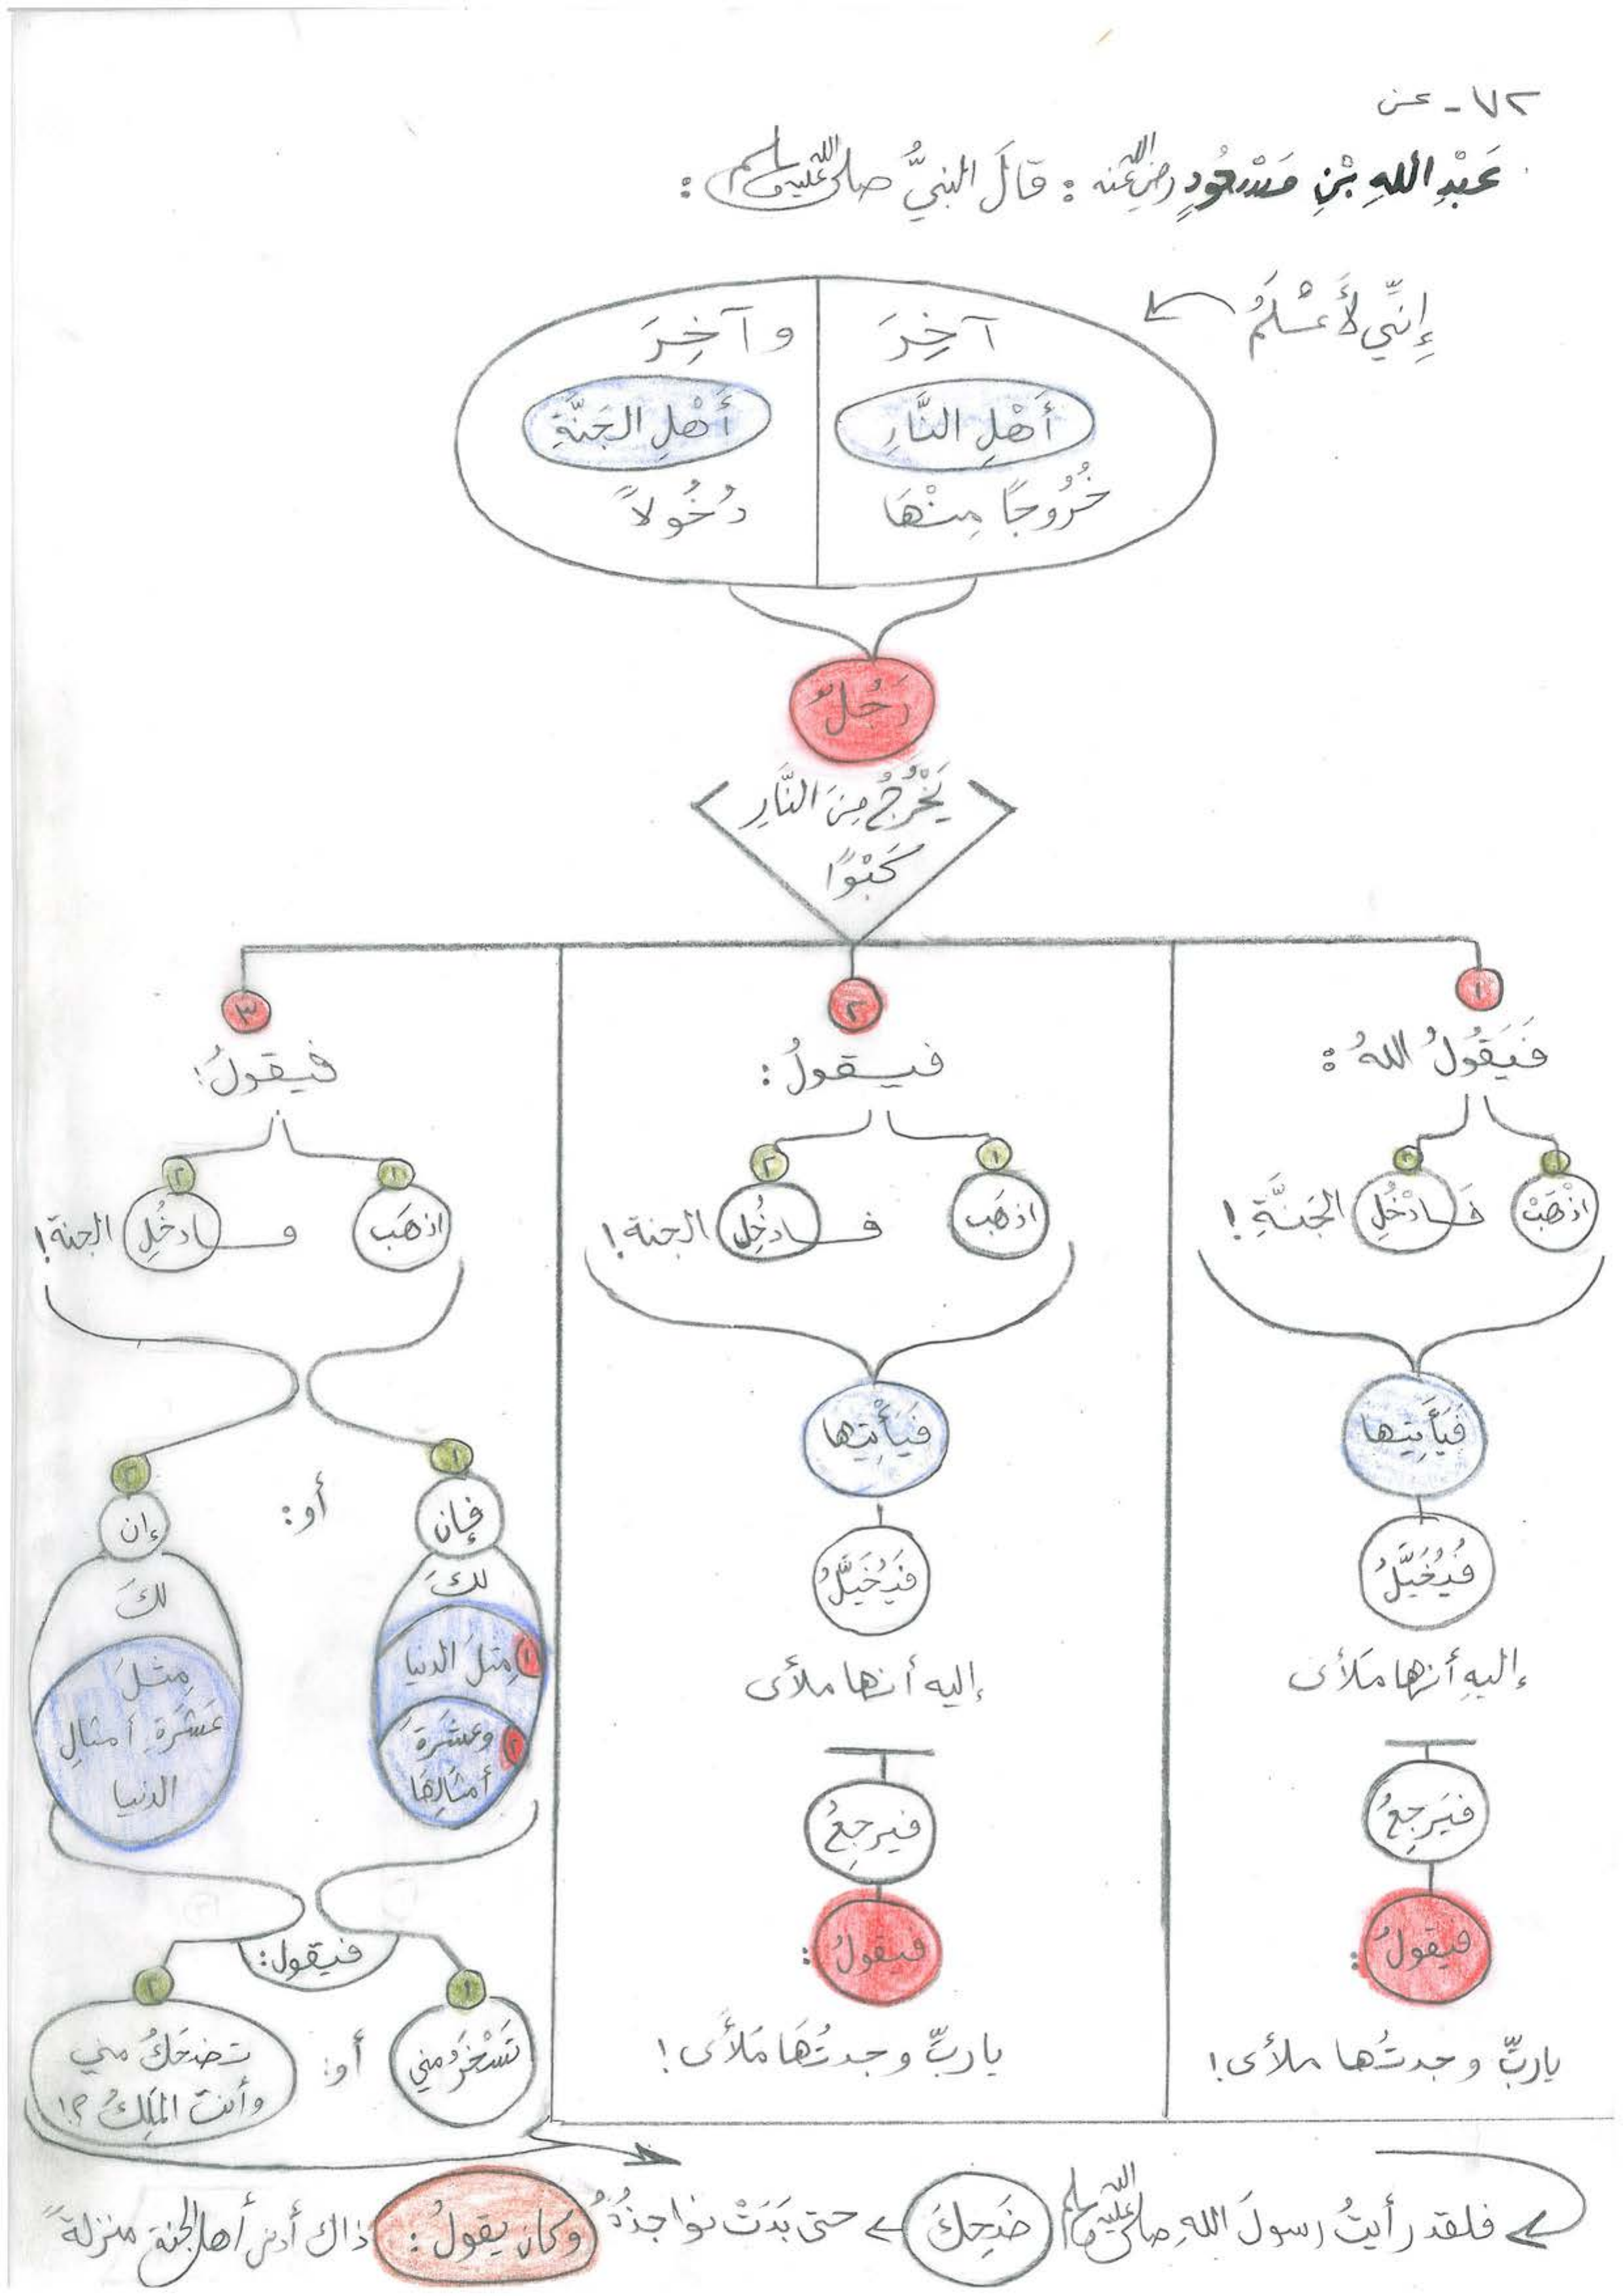 ٧٢ - عن
عَبْدِ اللهِ بْنِ مَسْعُودٍ رضي الله عنه : قَالَ النبيُّ صلى الله عليه وسلم :
إِنِّي لَأَعْلَمُ
آخِرَ
أَهْلِ النَّارِ
خُرُوجًا مِنْهَا
وآخِرَ
أَهْلِ الجَنَّةِ
دُخُولاً
رَجُلٌ
يَخْرُجُ مِنَ النَّارِ
كَبْوًا
١
فَيَقُولُ اللهُ :
١ ٢
اذْهَبْ فَادْخُلِ الجَنَّةِ !
فَيَأْتِيها
فَيُخَيَّلُ
إليهِ أنها مَلأى
فيَرجِعُ
فيقولُ :
ياربِّ وجدتُها ملأى !
٢
فيقولُ :
١ ٢
اذهَب فادخُلِ الجنة !
فيَأْتِيها
فيُخَيَّلُ
إليه أنها ملأى
فيرجِعُ
فيقولُ :
ياربِّ وجدتُهَا مَلأَى !
٣
فيقولُ :
١ ٢
اذهَب وادخُلِ الجنة !
١
فإن
لكَ
١ مِثلَ الدنيا
٢ وعشَرَةَ
أمثالِهَا
أو :
٢
إن
لكَ
مِثلَ
عَشَرَةِ أمثالِ
الدنيا
فيقول :
١
تَسْخَرُ مِني
أو :
٢
تضحَكُ مني
وأنتَ المَلِكُ ؟!
فلقد رأيتُ رسولَ اللهِ صلى الله عليه وسلم ضَحِكَ حتى بَدَتْ نواجذُهُ وكان يقولُ : ذاك أدنى أهل الجنة منزلةً